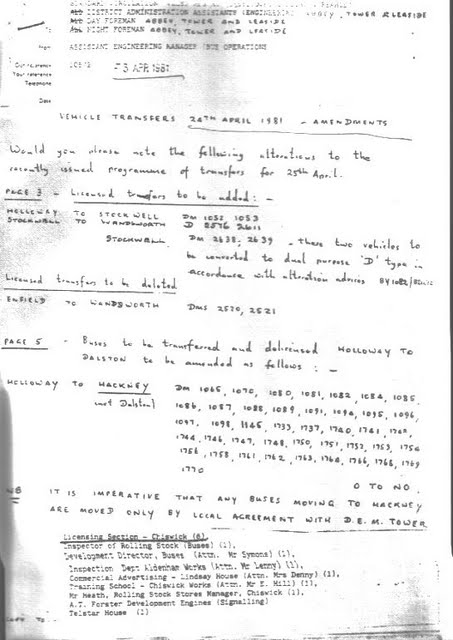 ALL DISTRICT ADMINISTRATION ASSISTANTS (ENGINEERING) ABBEY, TOWER & LEASIDE
ALL DAY FOREMAN ABBEY, TOWER AND LEASIDE
ALL NIGHT FOREMAN ABBEY, TOWER AND LEASIDE
from ASSISTANT ENGINEERING MANAGER (BUS OPERATIONS)
Our reference
Your reference
Telephone
3 APR 1981
Date
VEHICLE TRANSFERS 24TH APRIL 1981 - AMENDMENTS
Would you please note the following alterations to the
recently issued programme of transfers for 25th April.
PAGE 3 - Licensed transfers to be added: -
HOLLOWAY TO STOCKWELL DM 1052 1053
STOCKWELL TO WANDSWORTH D 2576 2611
STOCKWELL DM 2638, 2639 - these two vehicles to
be converted to dual purpose 'D' type in
accordance with alteration advices
Licensed transfers to be deleted
ENFIELD TO WANDSWORTH DMS 2520, 2521
PAGE 5 - Buses to be transferred and delicensed HOLLOWAY TO
DALSTON to be amended as follows : -
HOLLOWAY TO HACKNEY DM 1065, 1070, 1080, 1081, 1082, 1084, 1085
(not Dalston) 1086, 1087, 1088, 1089, 1091, 1094, 1095, 1096,
1097, 1098, 1145, 1733, 1737, 1740, 1741, 1742,
1744, 1746, 1747, 1748, 1750, 1751, 1752, 1753, 1754
1756, 1758, 1761, 1762, 1763, 1764, 1766, 1768, 1769
1770
O TO NO.
NB IT IS IMPERATIVE THAT ANY BUSES MOVING TO HACKNEY
ARE MOVED ONLY BY LOCAL AGREEMENT WITH D.E.M. TOWER
Licensing Section - Chiswick (6),
Inspector of Rolling Stock (Buses) (1),
Development Director, Buses (Attn. Mr Symons) (1),
Inspection Dept Aldenham Works (Attn. Mr Lenny) (1),
Commercial Advertising - Lindsay House (Attn. Mrs Denny) (1),
Training School - Chiswick Works (Attn. Mr E. Hill) (1),
Mr Heath, Rolling Stock Stores Manager, Chiswick (1),
A.T. Forster Development Engines (Signalling)
Telstar House (1)